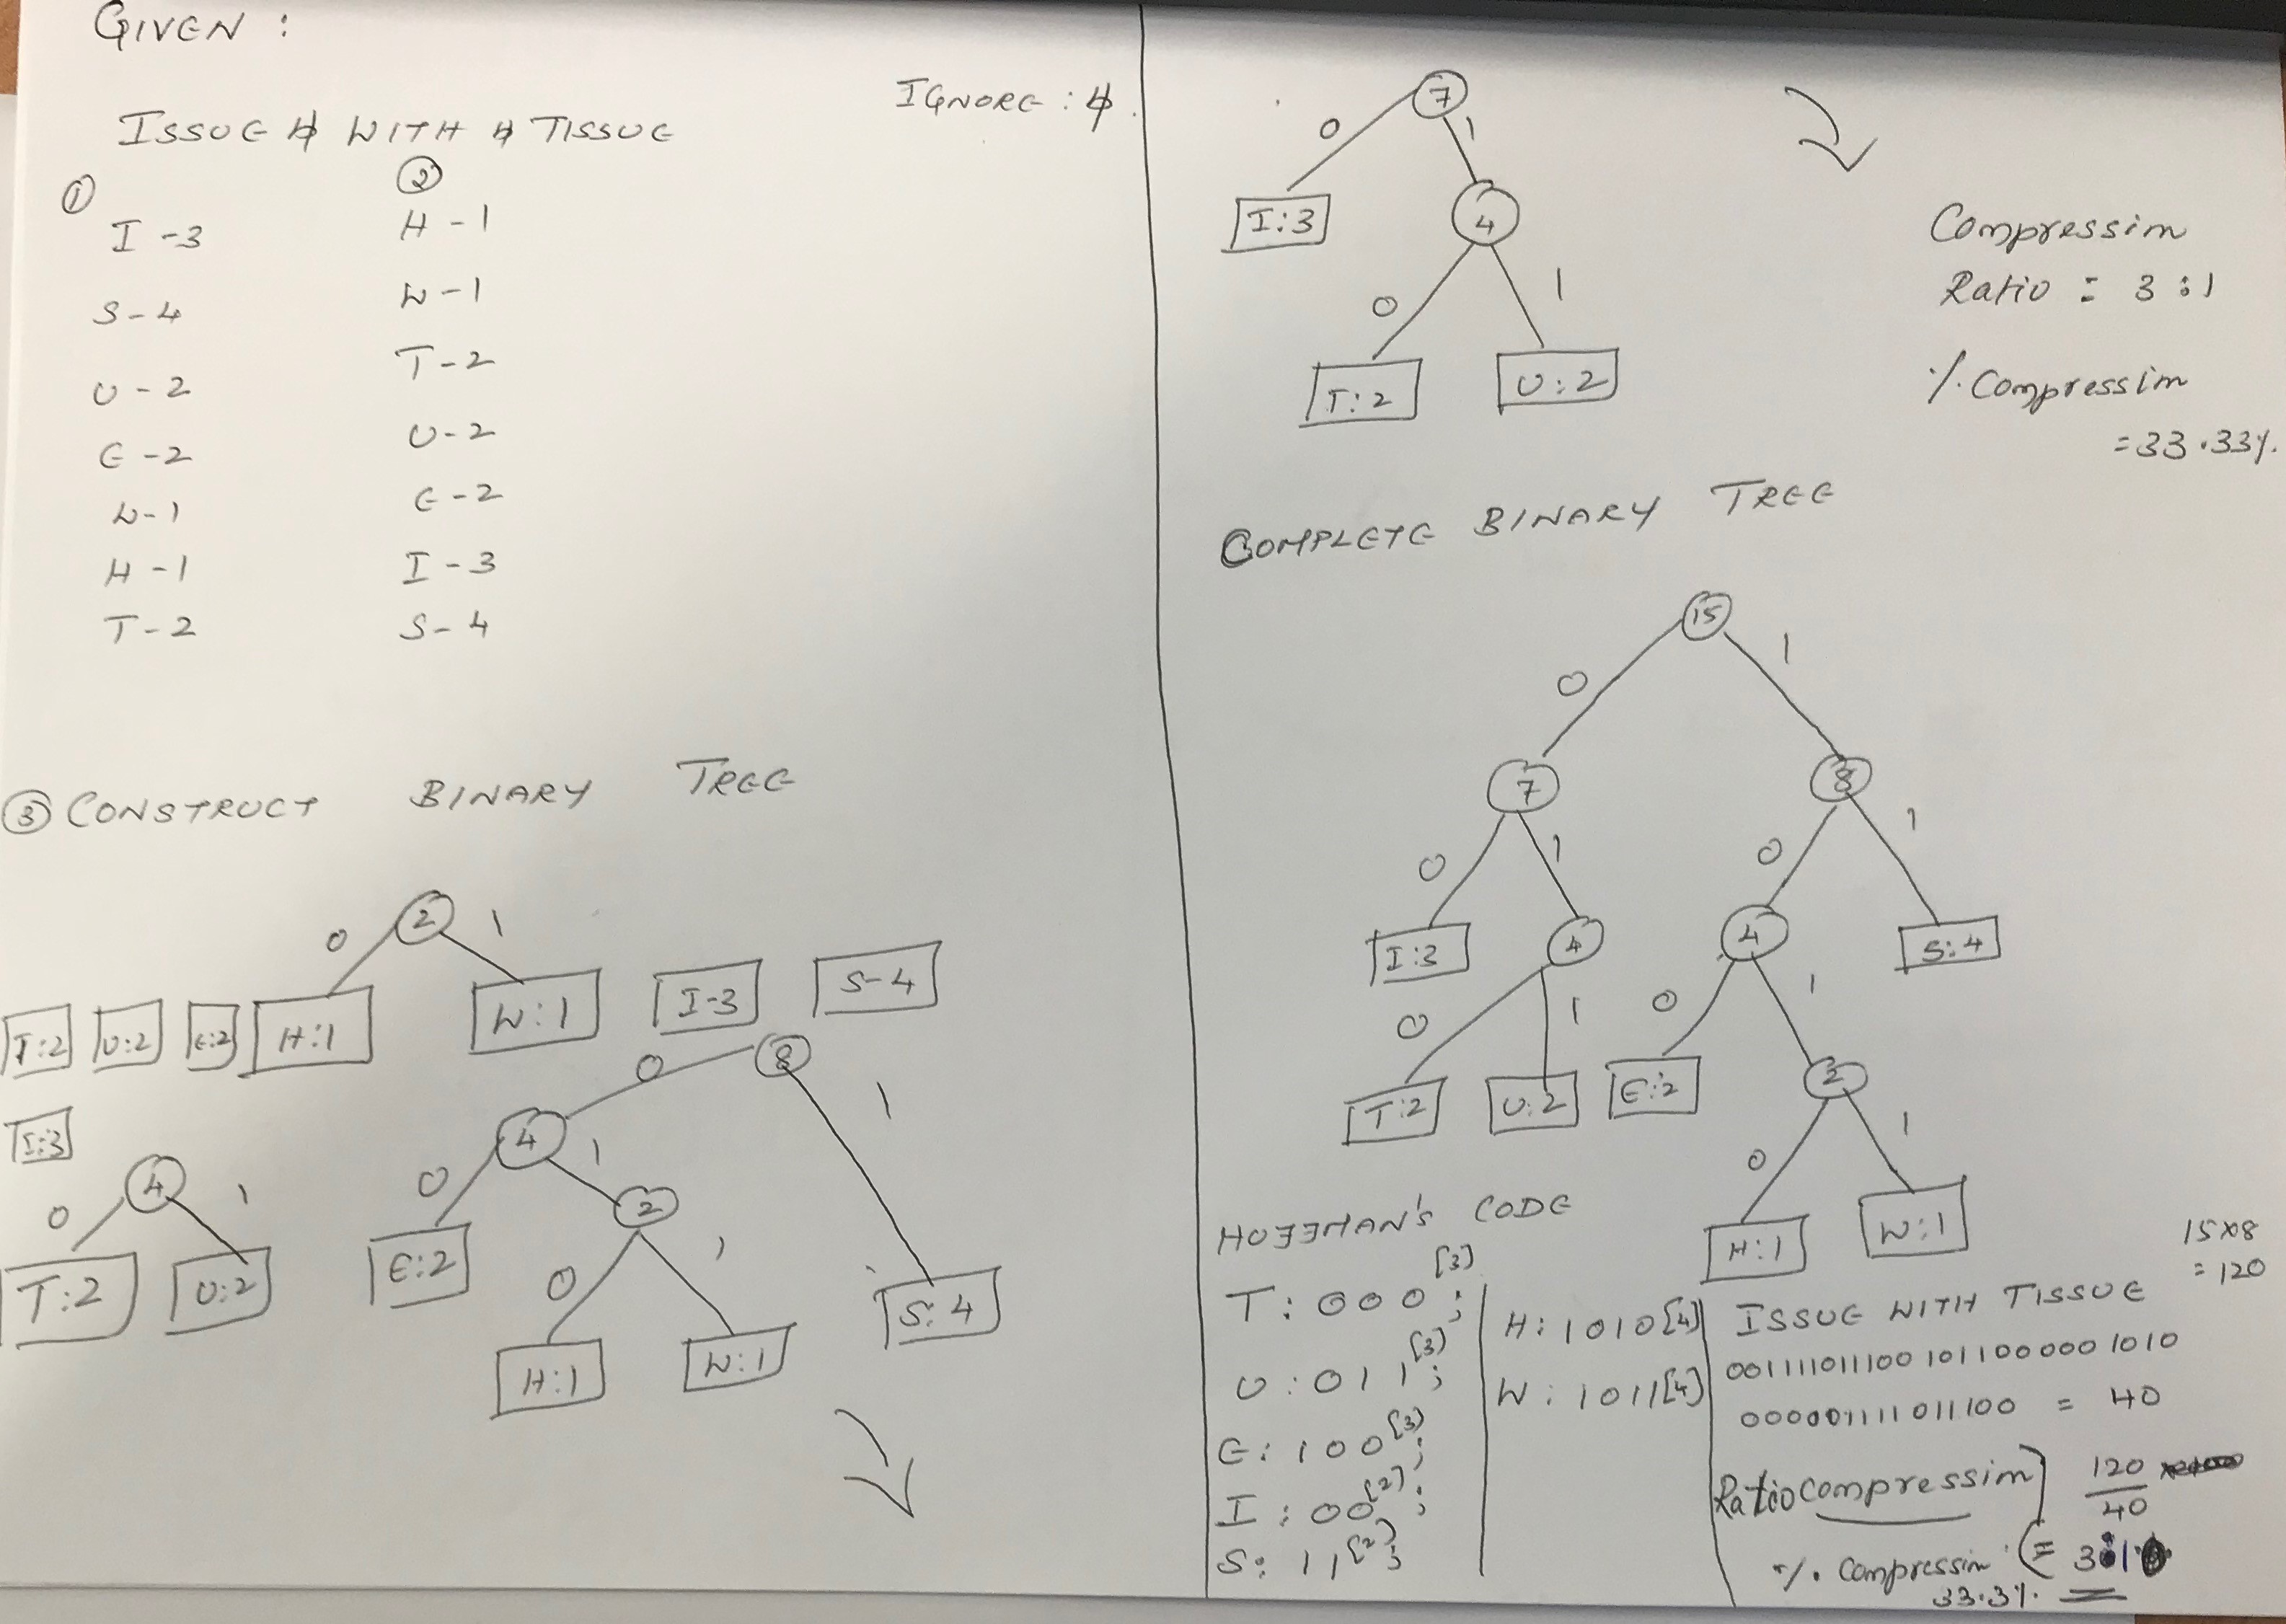 GIVEN :
IGNORE : ␢.
ISSUE ␢ WITH ␢ TISSUE
① ②
I - 3 H - 1
S - 4 W - 1
U - 2 T - 2
E - 2 U - 2
W - 1 E - 2
H - 1 I - 3
T - 2 S - 4
③ CONSTRUCT BINARY TREE
2
0 1
T:2 U:2 E:2 H:1 W:1 I-3 S-4
8
0 1
I:3
4
0 1
4
0 1
2
T:2 U:2 E:2
0 1
S:4
H:1 W:1
7
0 1
I:3 4
0 1
T:2 U:2
Compression
Ratio : 3 : 1
% Compression
= 33.33%.
COMPLETE BINARY TREE
15
0 1
7 8
0 1 0 1
I:3 4 4 S:4
0 1 0 1
T:2 U:2 E:2 2
0 1
H:1 W:1
HUFFMAN'S CODE
T : 000 [3] ;
U : 011 [3] ;
E : 100 [3] ;
I : 00 [2] ;
S : 11 [2] ;
H : 1010 [4]
W : 1011 [4]
15x8
= 120
ISSUE WITH TISSUE
0011110111001011000001010
000001111011100 = 40
Ratio compression 120
40
= 3:1
% compression
33.3%.